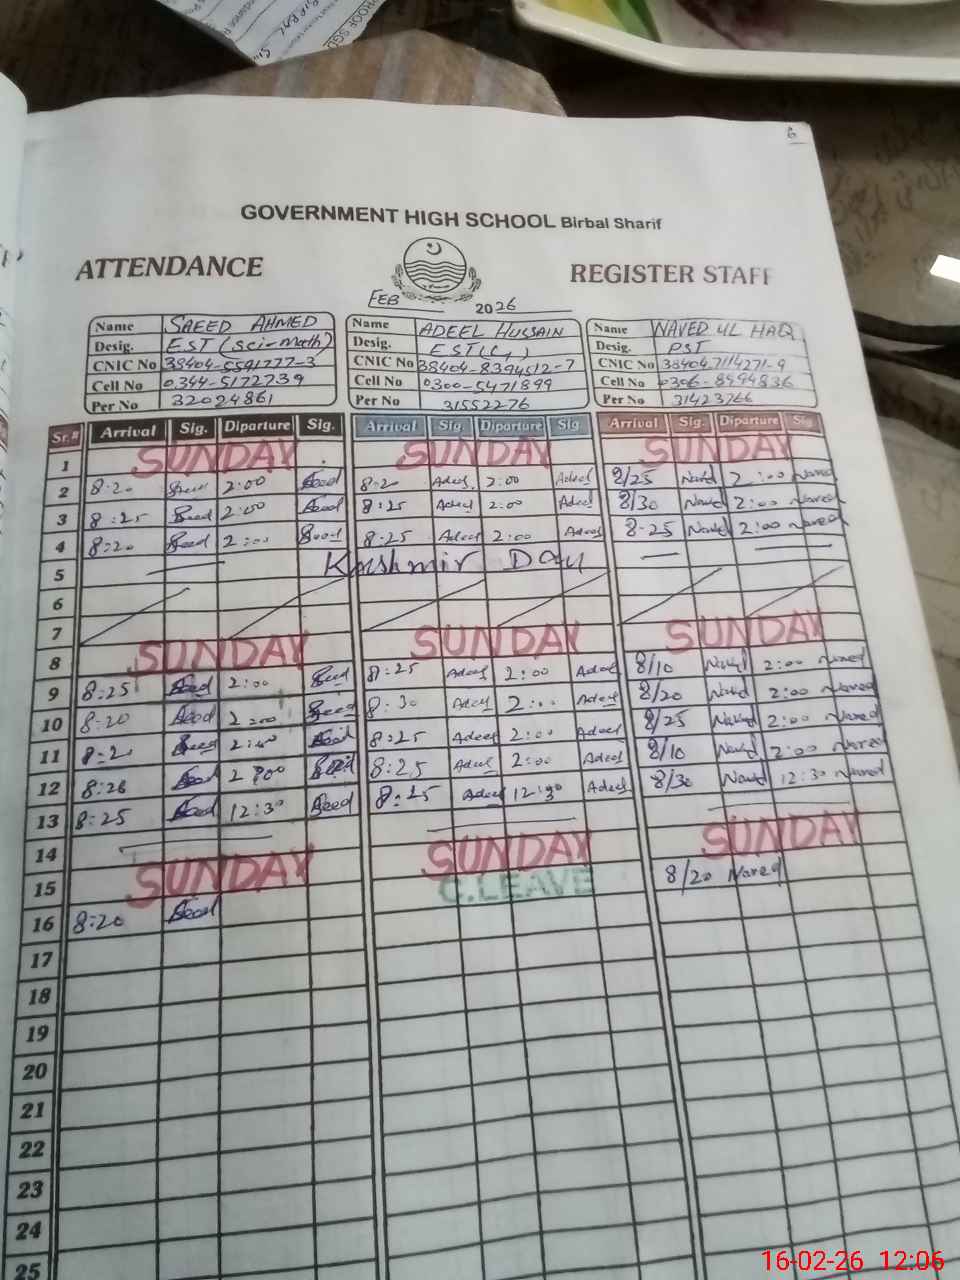 6
GOVERNMENT HIGH SCHOOL Birbal Sharif
ATTENDANCE REGISTER STAFF
FEB 2026
Name SAEED AHMED Name ADEEL HUSSAIN Name NAVED UL HAQ
Desig. EST (Sci-Math) Desig. EST( Desig. PST
CNIC No 38404-5591777-3 CNIC No 38404-8394512-7 CNIC No 38404-7114271-9
Cell No 0344-5172739 Cell No 0300-5471899 Cell No 0306-8494836
Per No 32024861 Per No 31552276 Per No 31423766
Sr.# Arrival Sig. Diparture Sig. Arrival Sig. Diparture Sig Arrival Sig. Diparture Sig
1 SUNDAY SUNDAY SUNDAY
2 8:20 Saeed 2:00 Saeed 8:20 Adeel 2:00 Adeel 8/25 Naved 2:00 Naved
3 8:25 Saeed 2:00 Saeed 8:25 Adeel 2:00 Adeel 8/30 Naved 2:00 Naved
4 8:20 Saeed 2:00 Saeed 8:25 Adeel 2:00 Adeel 8-25 Naved 2:00 Naved
5 Kashmir Day
6
7
8 SUNDAY SUNDAY SUNDAY
9 8:25 Saeed 2:00 Saeed 8:25 Adeel 2:00 Adeel 8/10 Naved 2:00 Naved
10 8:20 Saeed 2:00 Saeed 8:30 Adeel 2:00 Adeel 8/20 Naved 2:00 Naved
11 8:20 Saeed 2:00 Saeed 8:25 Adeel 2:00 Adeel 8/25 Naved 2:00 Naved
12 8:26 Saeed 2:00 Saeed 8:25 Adeel 2:00 Adeel 8/10 Naved 2:00 Naved
13 8:25 Saeed 12:30 Saeed 8:25 Adeel 12:30 Adeel 8/30 Naved 12:30 Naved
14
15 SUNDAY SUNDAY SUNDAY
16 8:20 Saeed C.LEAVE 8/20 Naved
17
18
19
20
21
22
23
24
25
16-02-26 12:06